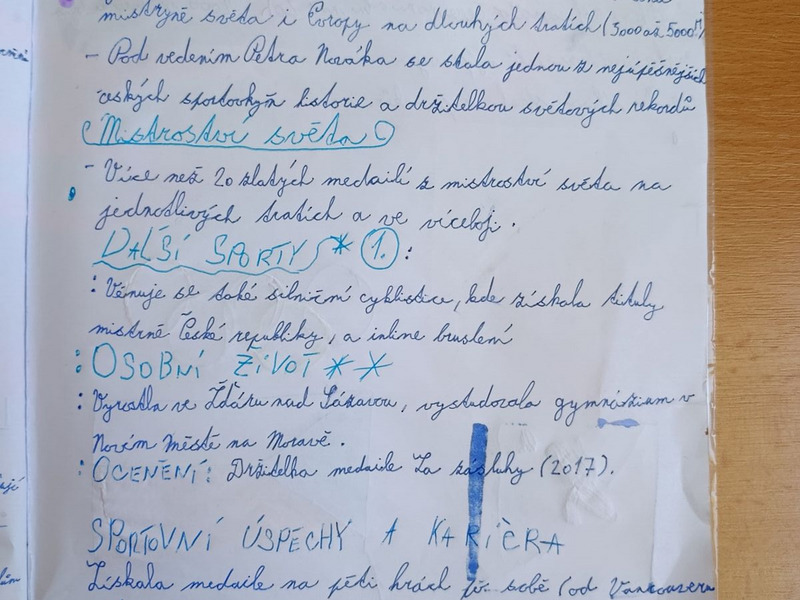 mistryně světa i Evropy na dlouhých tratích (3000 až 5000 M)
- Pod vedením Petra Nováka se stala jednou z nejúspěšnějších
českých sportovkyň historie a držitelkou světových rekordů
Mistroství světa
- Více než 20 zlatých medailí z mistroství světa na
jednotlivých tratích a ve víceboji.
DALŠÍ SPORTY * 1. :
: Věnuje se také silniční cyklistice, kde získala tituly
mistrně České republiky, a inline bruslení
: OSOBNÍ ŽIVOT * *
: Vyrostla ve Žďáru nad Sázavou, vystudovala gymnázium v
Novém Městě na Moravě.
: OCENĚNÍ: Držitelka medaile Za zásluhy (2017).
SPORTOVNÍ ÚSPECHY A KARIÈRA
Získala medaile na pěti hrách po sobě (od Vancouveru